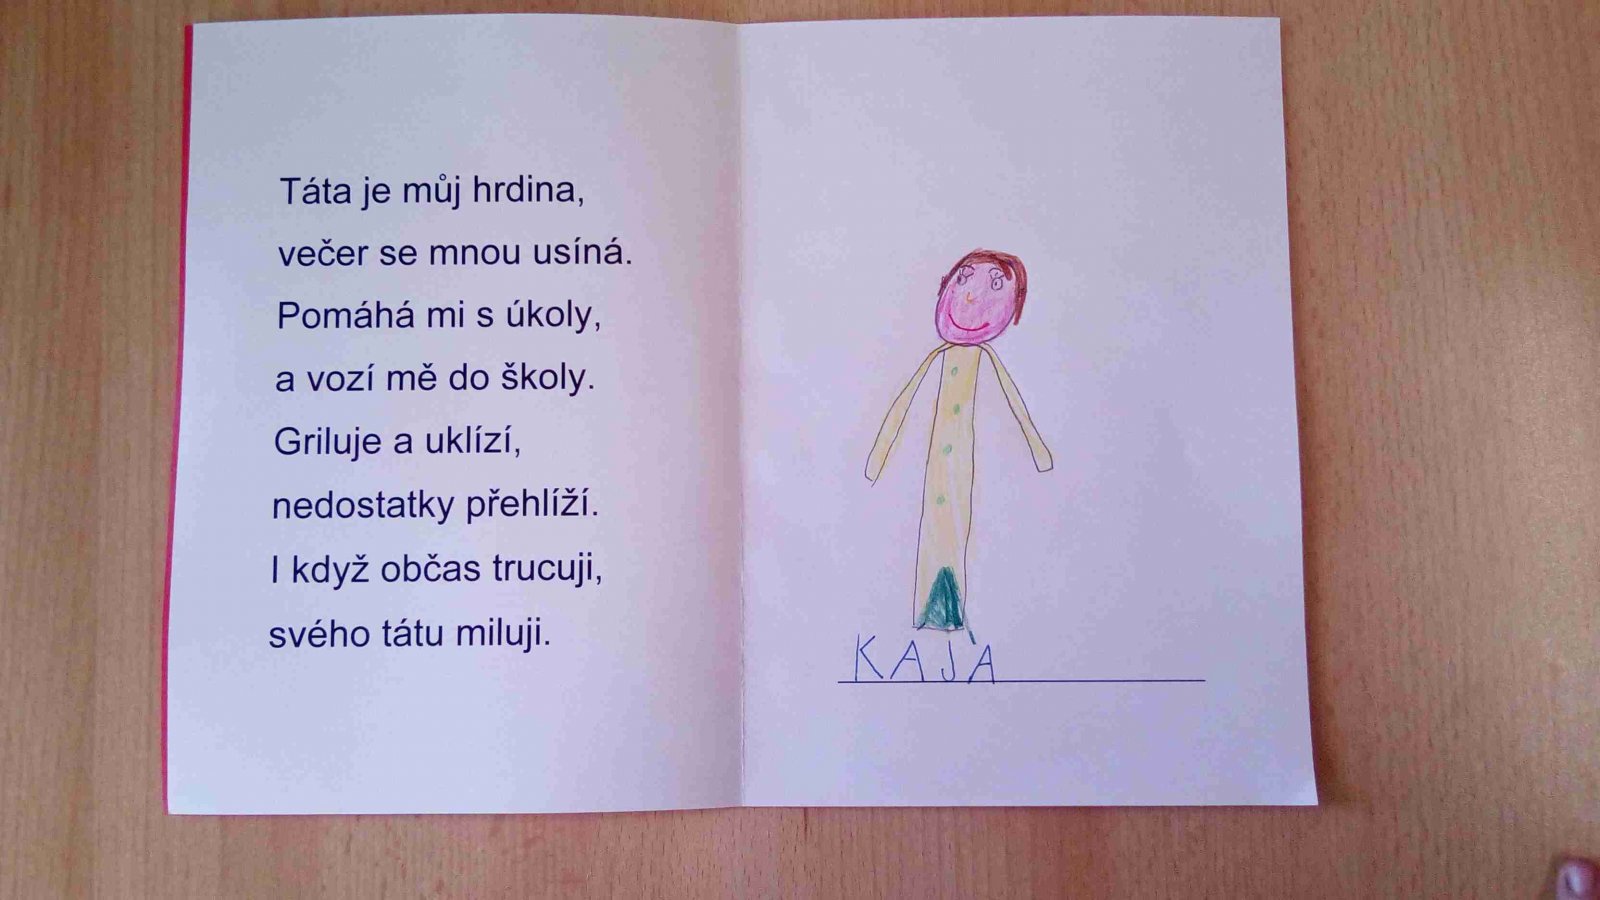 Táta je můj hrdina,
večer se mnou usíná.
Pomáhá mi s úkoly,
a vozí mě do školy.
Griluje a uklízí,
nedostatky přehlíží.
I když občas trucuji,
svého tátu miluji.
KAJA